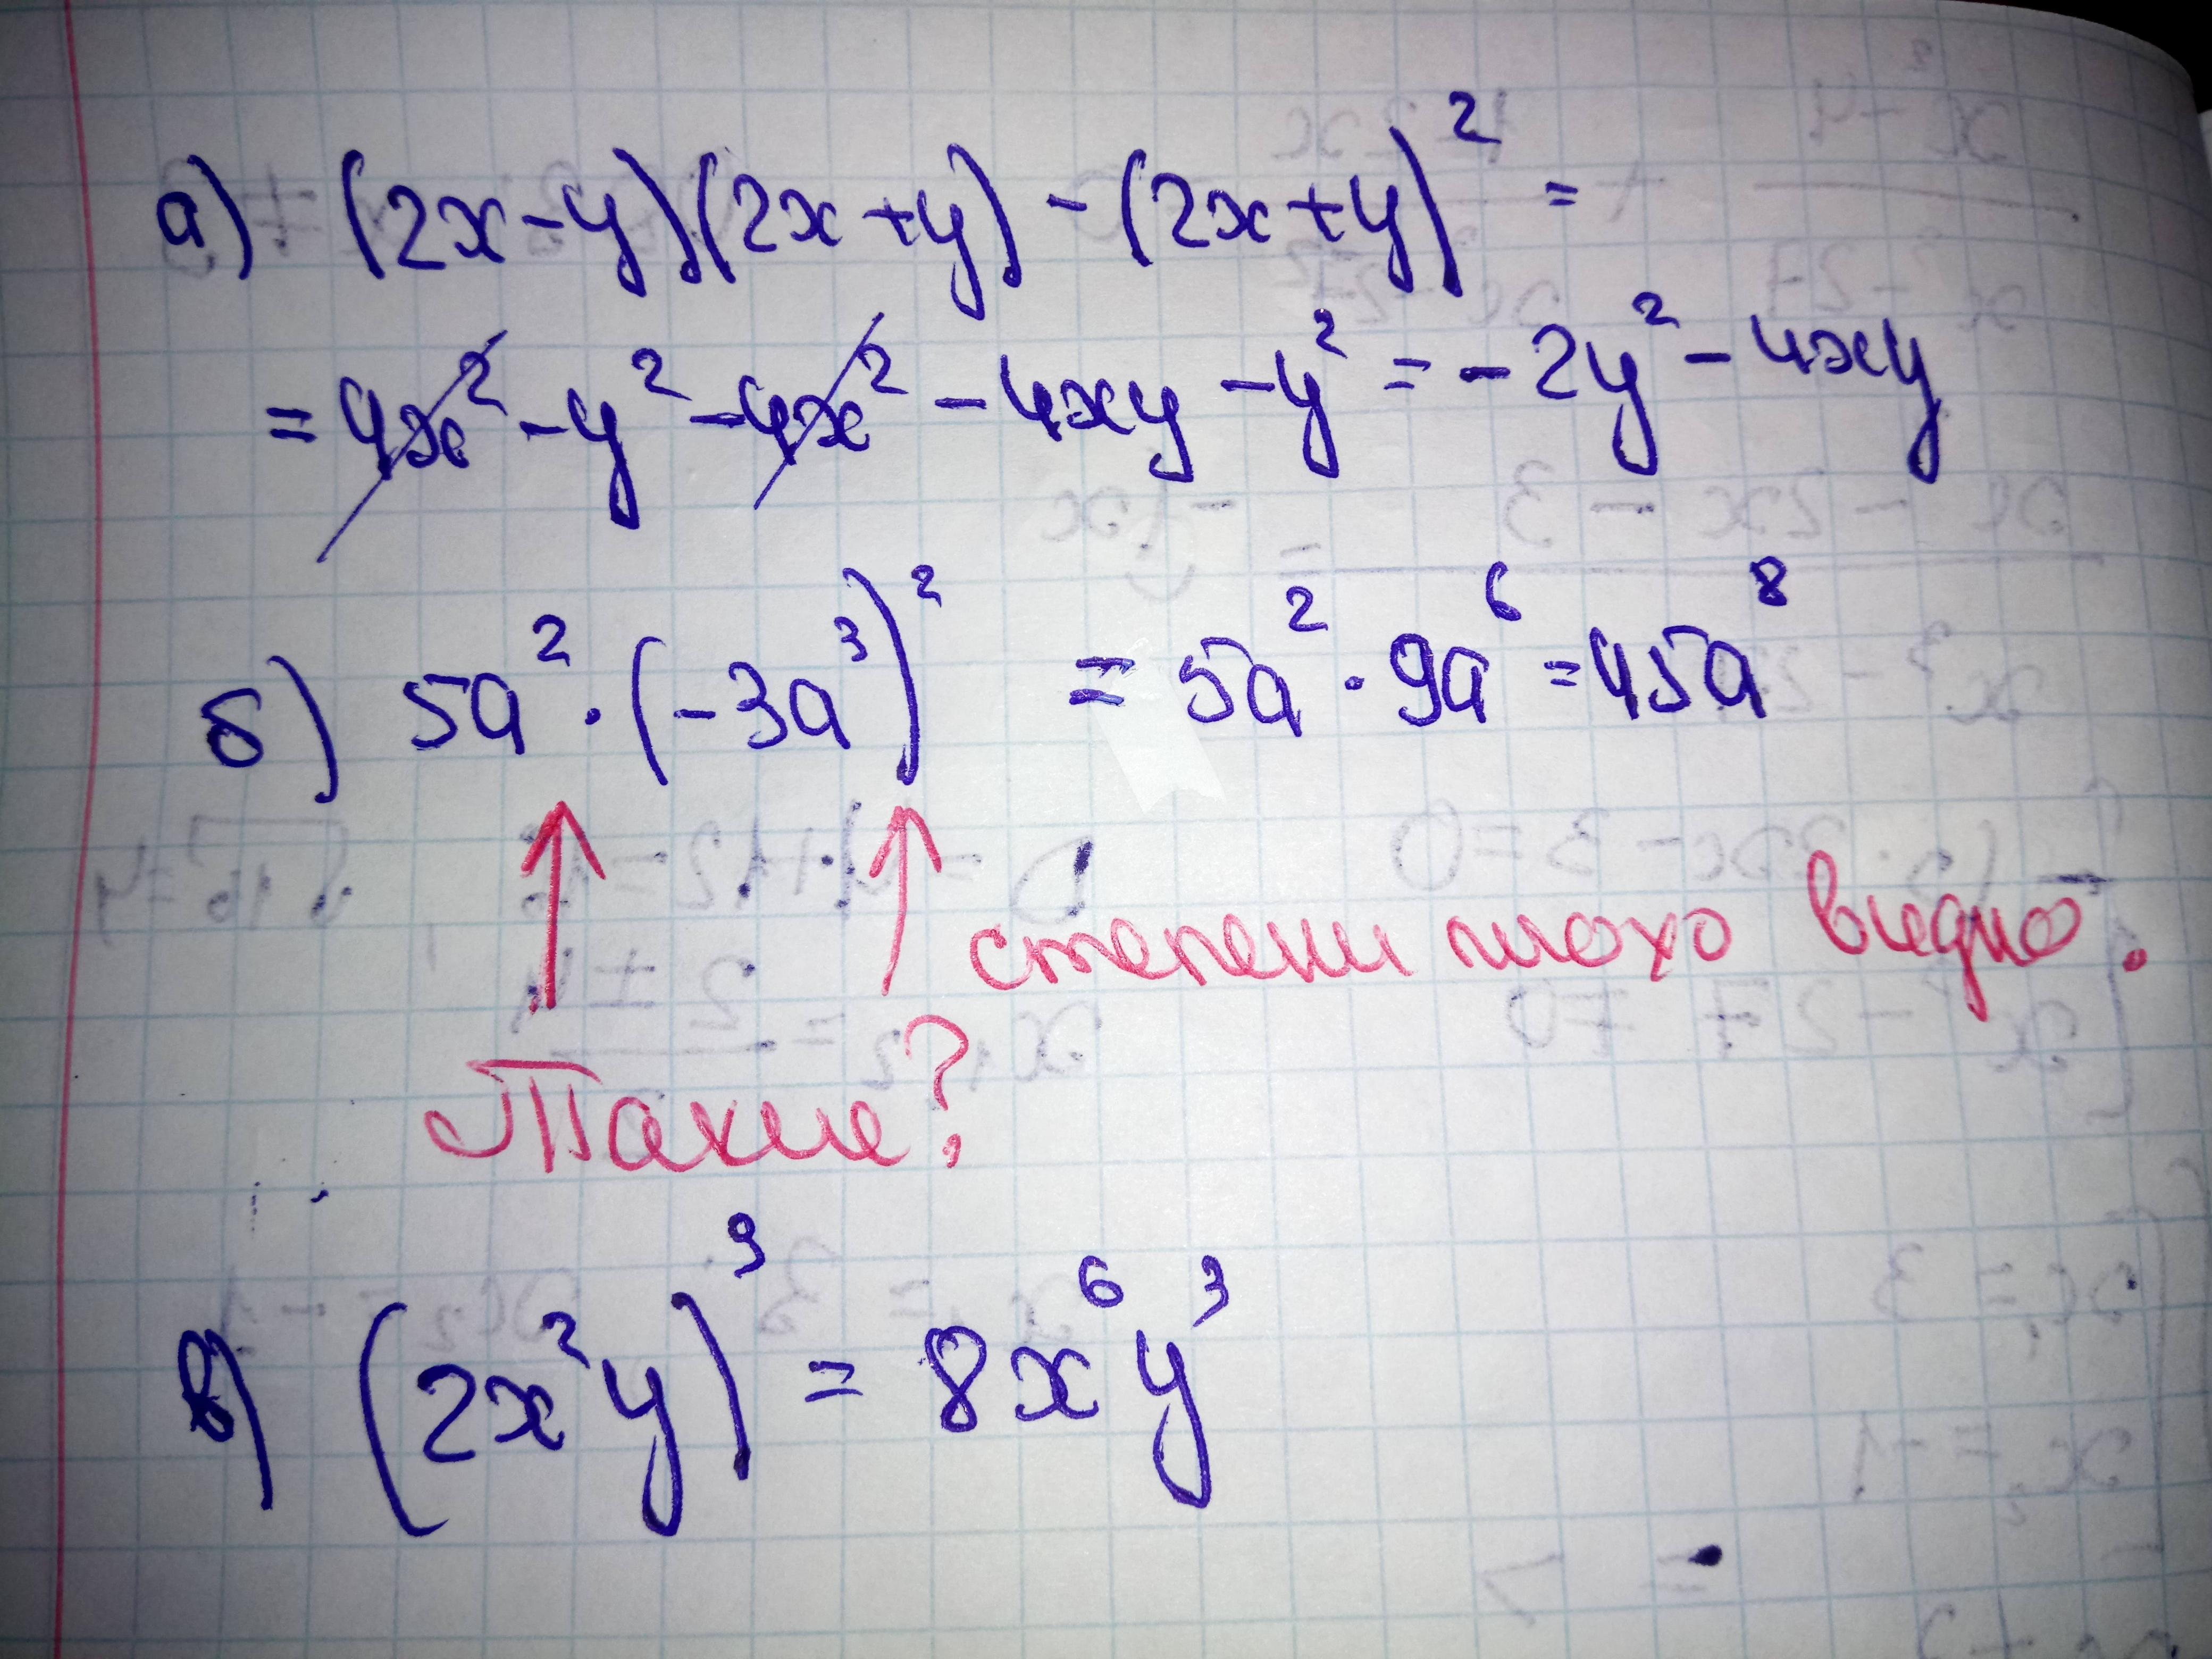 а) (2x-y)(2x+y) - (2x+y)² =
= 4x² - y² - 4x² - 4xy - y² = - 2y² - 4xy
б) 5a² · (-3a³)² = 5a² · 9a⁶ = 45a⁸
степени плохо видно.
Такие?
в) (2x²y)³ = 8x⁶y³